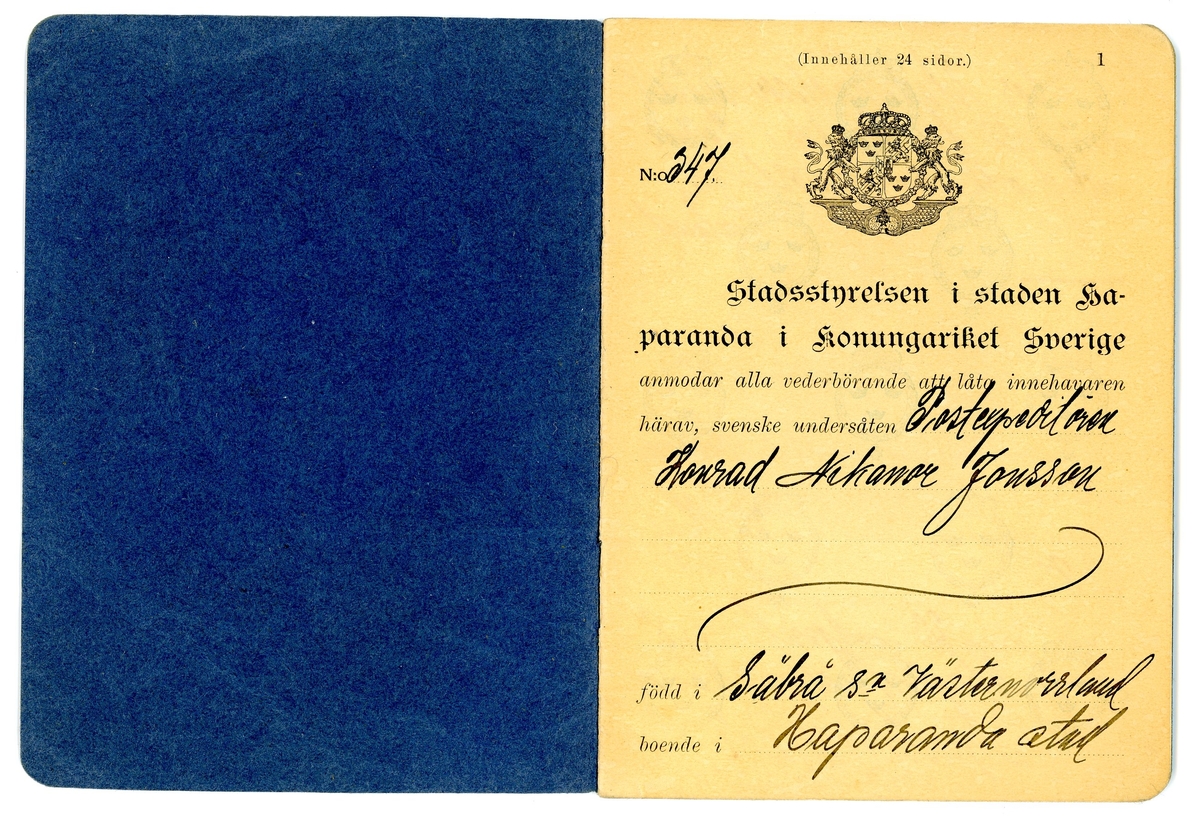 (Innehåller 24 sidor.) 1
N:o 347
Stadsstyrelsen i staden Ha-
paranda i Konungariket Sverige
anmodar alla vederbörande att låta innehavaren
härav, svenske undersåten Postexpeditören
Konrad Nikanor Jonsson
född i Säbrå sn Västernorrland
boende i Haparanda stad